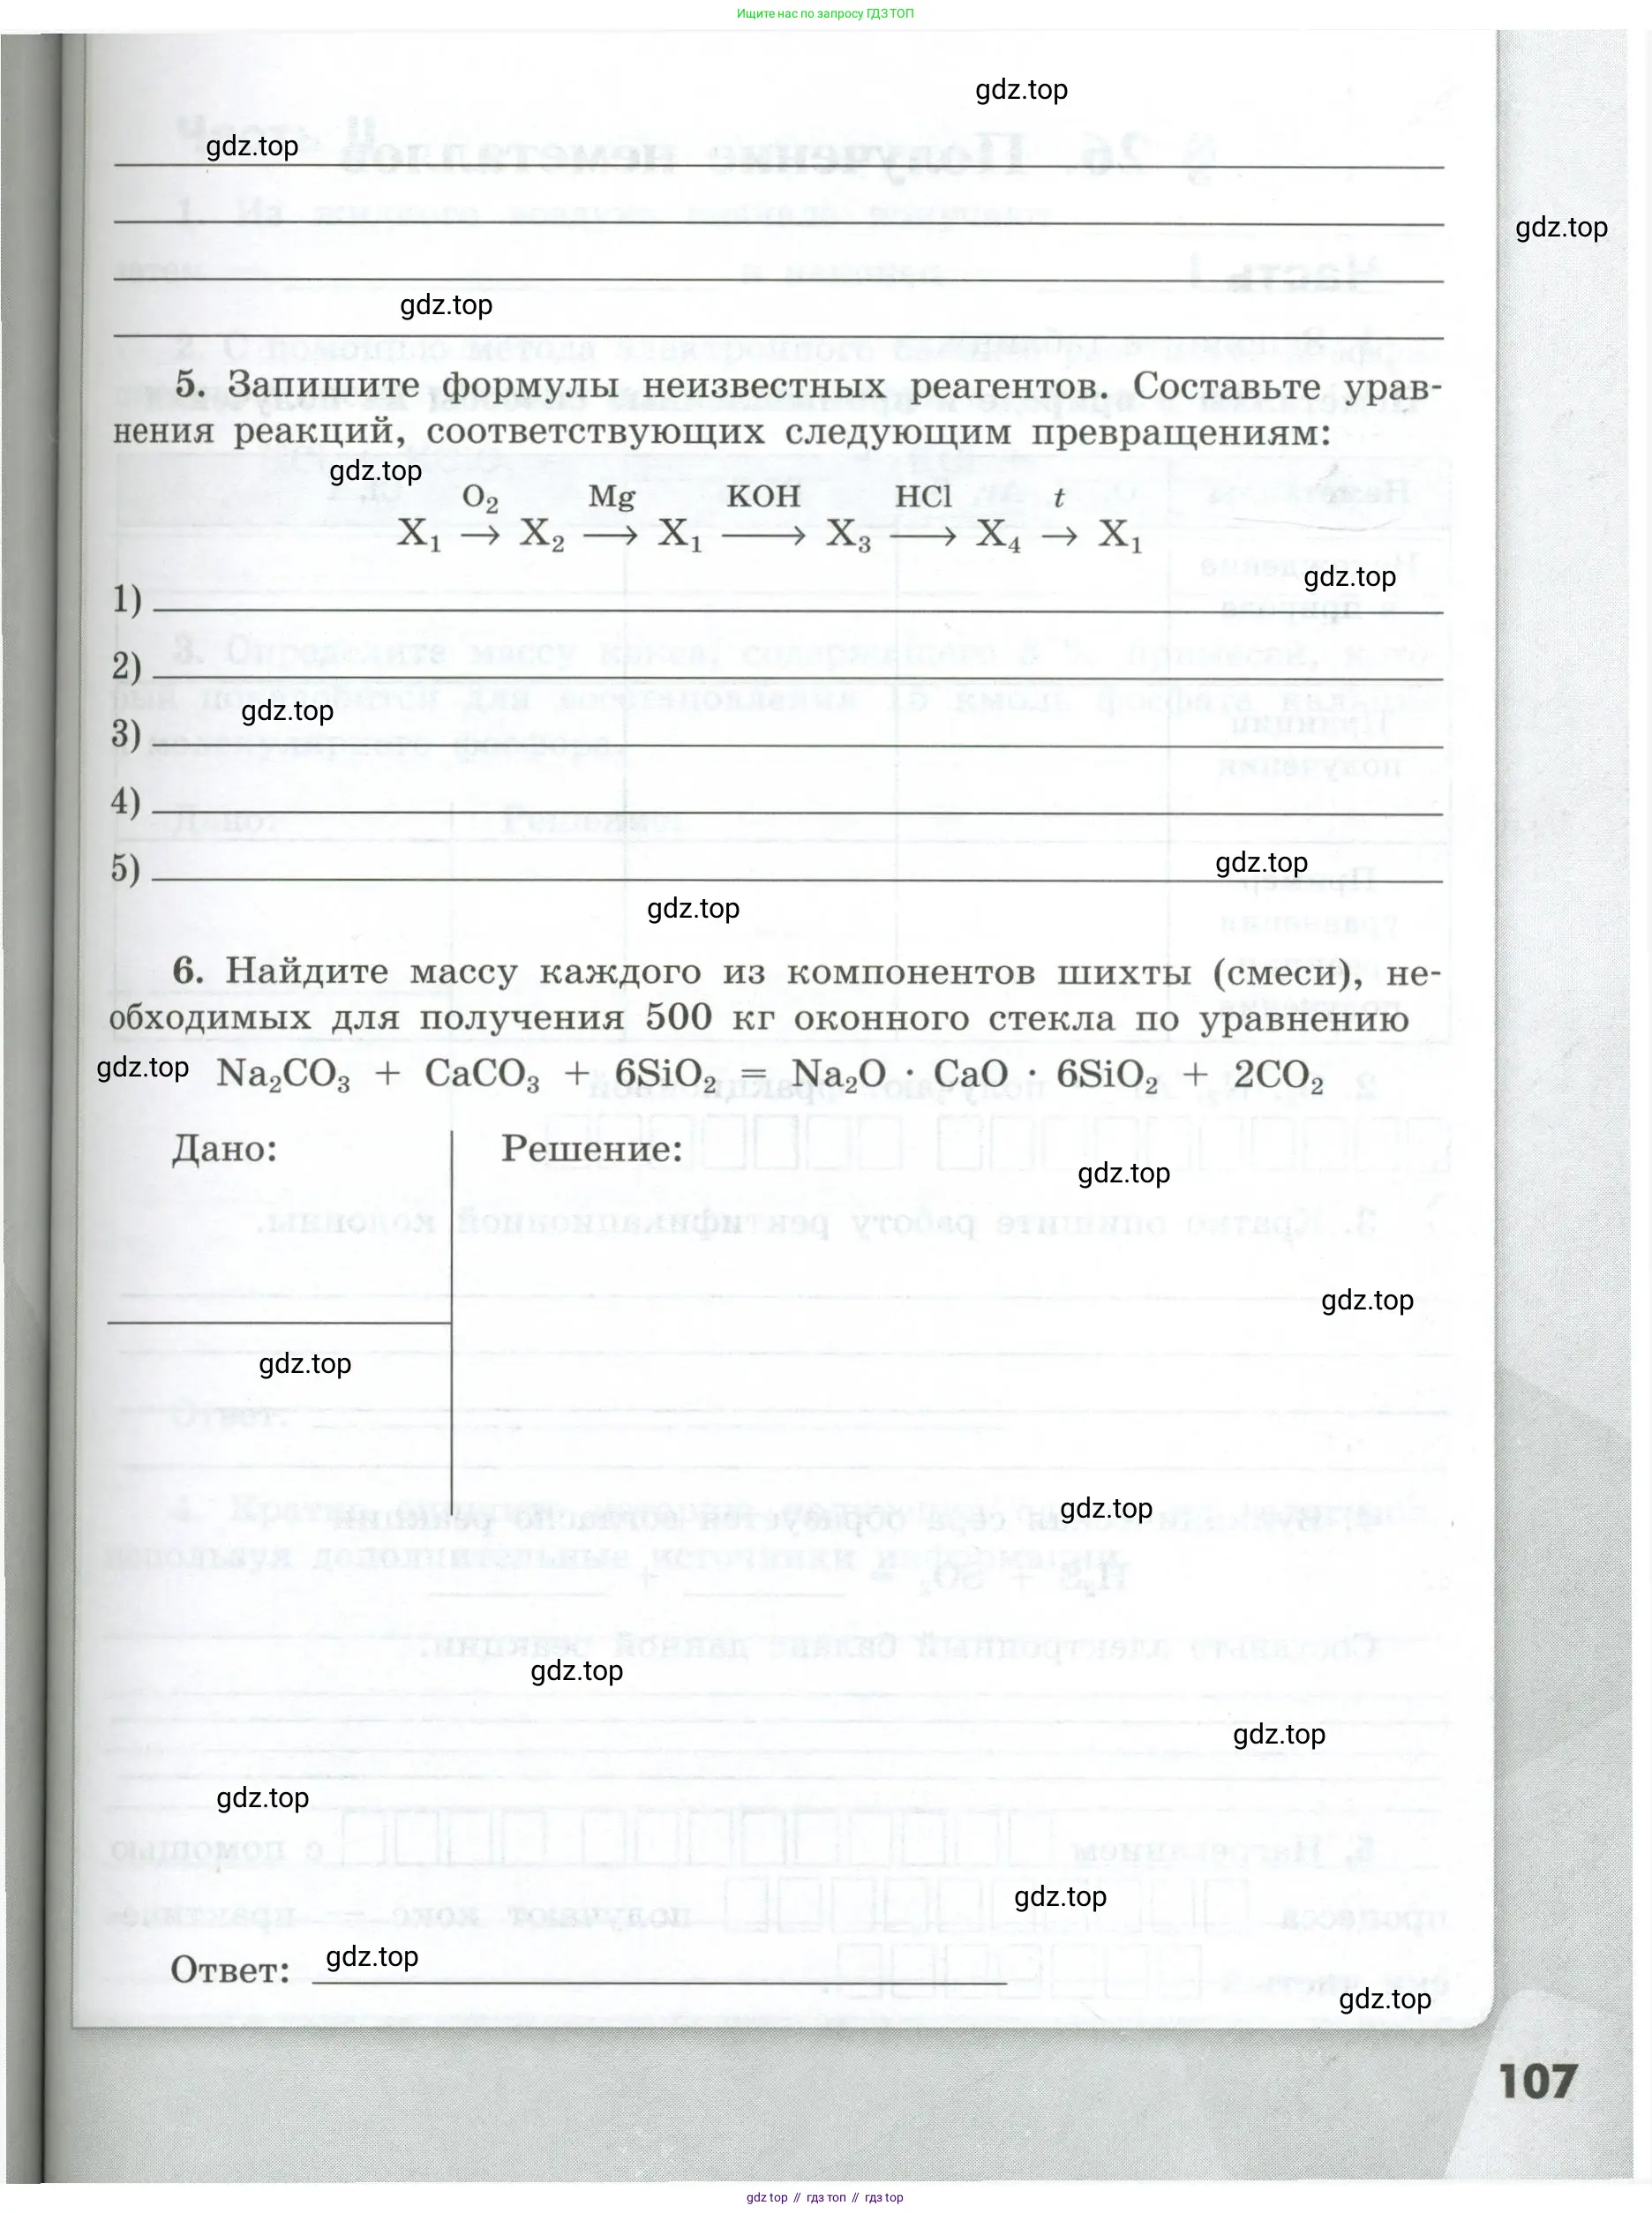 Ищите нас по запросу ГДЗ ТОП
gdz.top
gdz.top
gdz.top
gdz.top
5. Запишите формулы неизвестных реагентов. Составьте урав-
нения реакций, соответствующих следующим превращениям:
gdz.top
O₂ Mg KOH HCl t
X₁ → X₂ → X₁ → X₃ → X₄ → X₁
gdz.top
1)
2)
gdz.top
3)
4)
5)
gdz.top
gdz.top
6. Найдите массу каждого из компонентов шихты (смеси), не-
обходимых для получения 500 кг оконного стекла по уравнению
gdz.top
Na₂CO₃ + CaCO₃ + 6SiO₂ = Na₂O · CaO · 6SiO₂ + 2CO₂
Дано: Решение:
gdz.top
gdz.top
gdz.top
gdz.top
gdz.top
gdz.top
gdz.top
gdz.top
Ответ: gdz.top
gdz.top
107
gdz top // гдз топ // гдз top